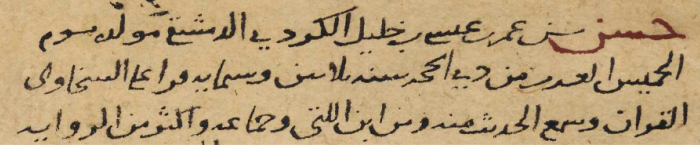 حسن بن عمر بن عيسى بن خليل الكردي الدمشقي مولده يوم
الخميس العشرين من ذي الحجة سنة ثلاثين وستمايه قرا على السخاوى
القران وسمع الحديث منه ومن ابن اللتي وجماعه واكثر من الروايه